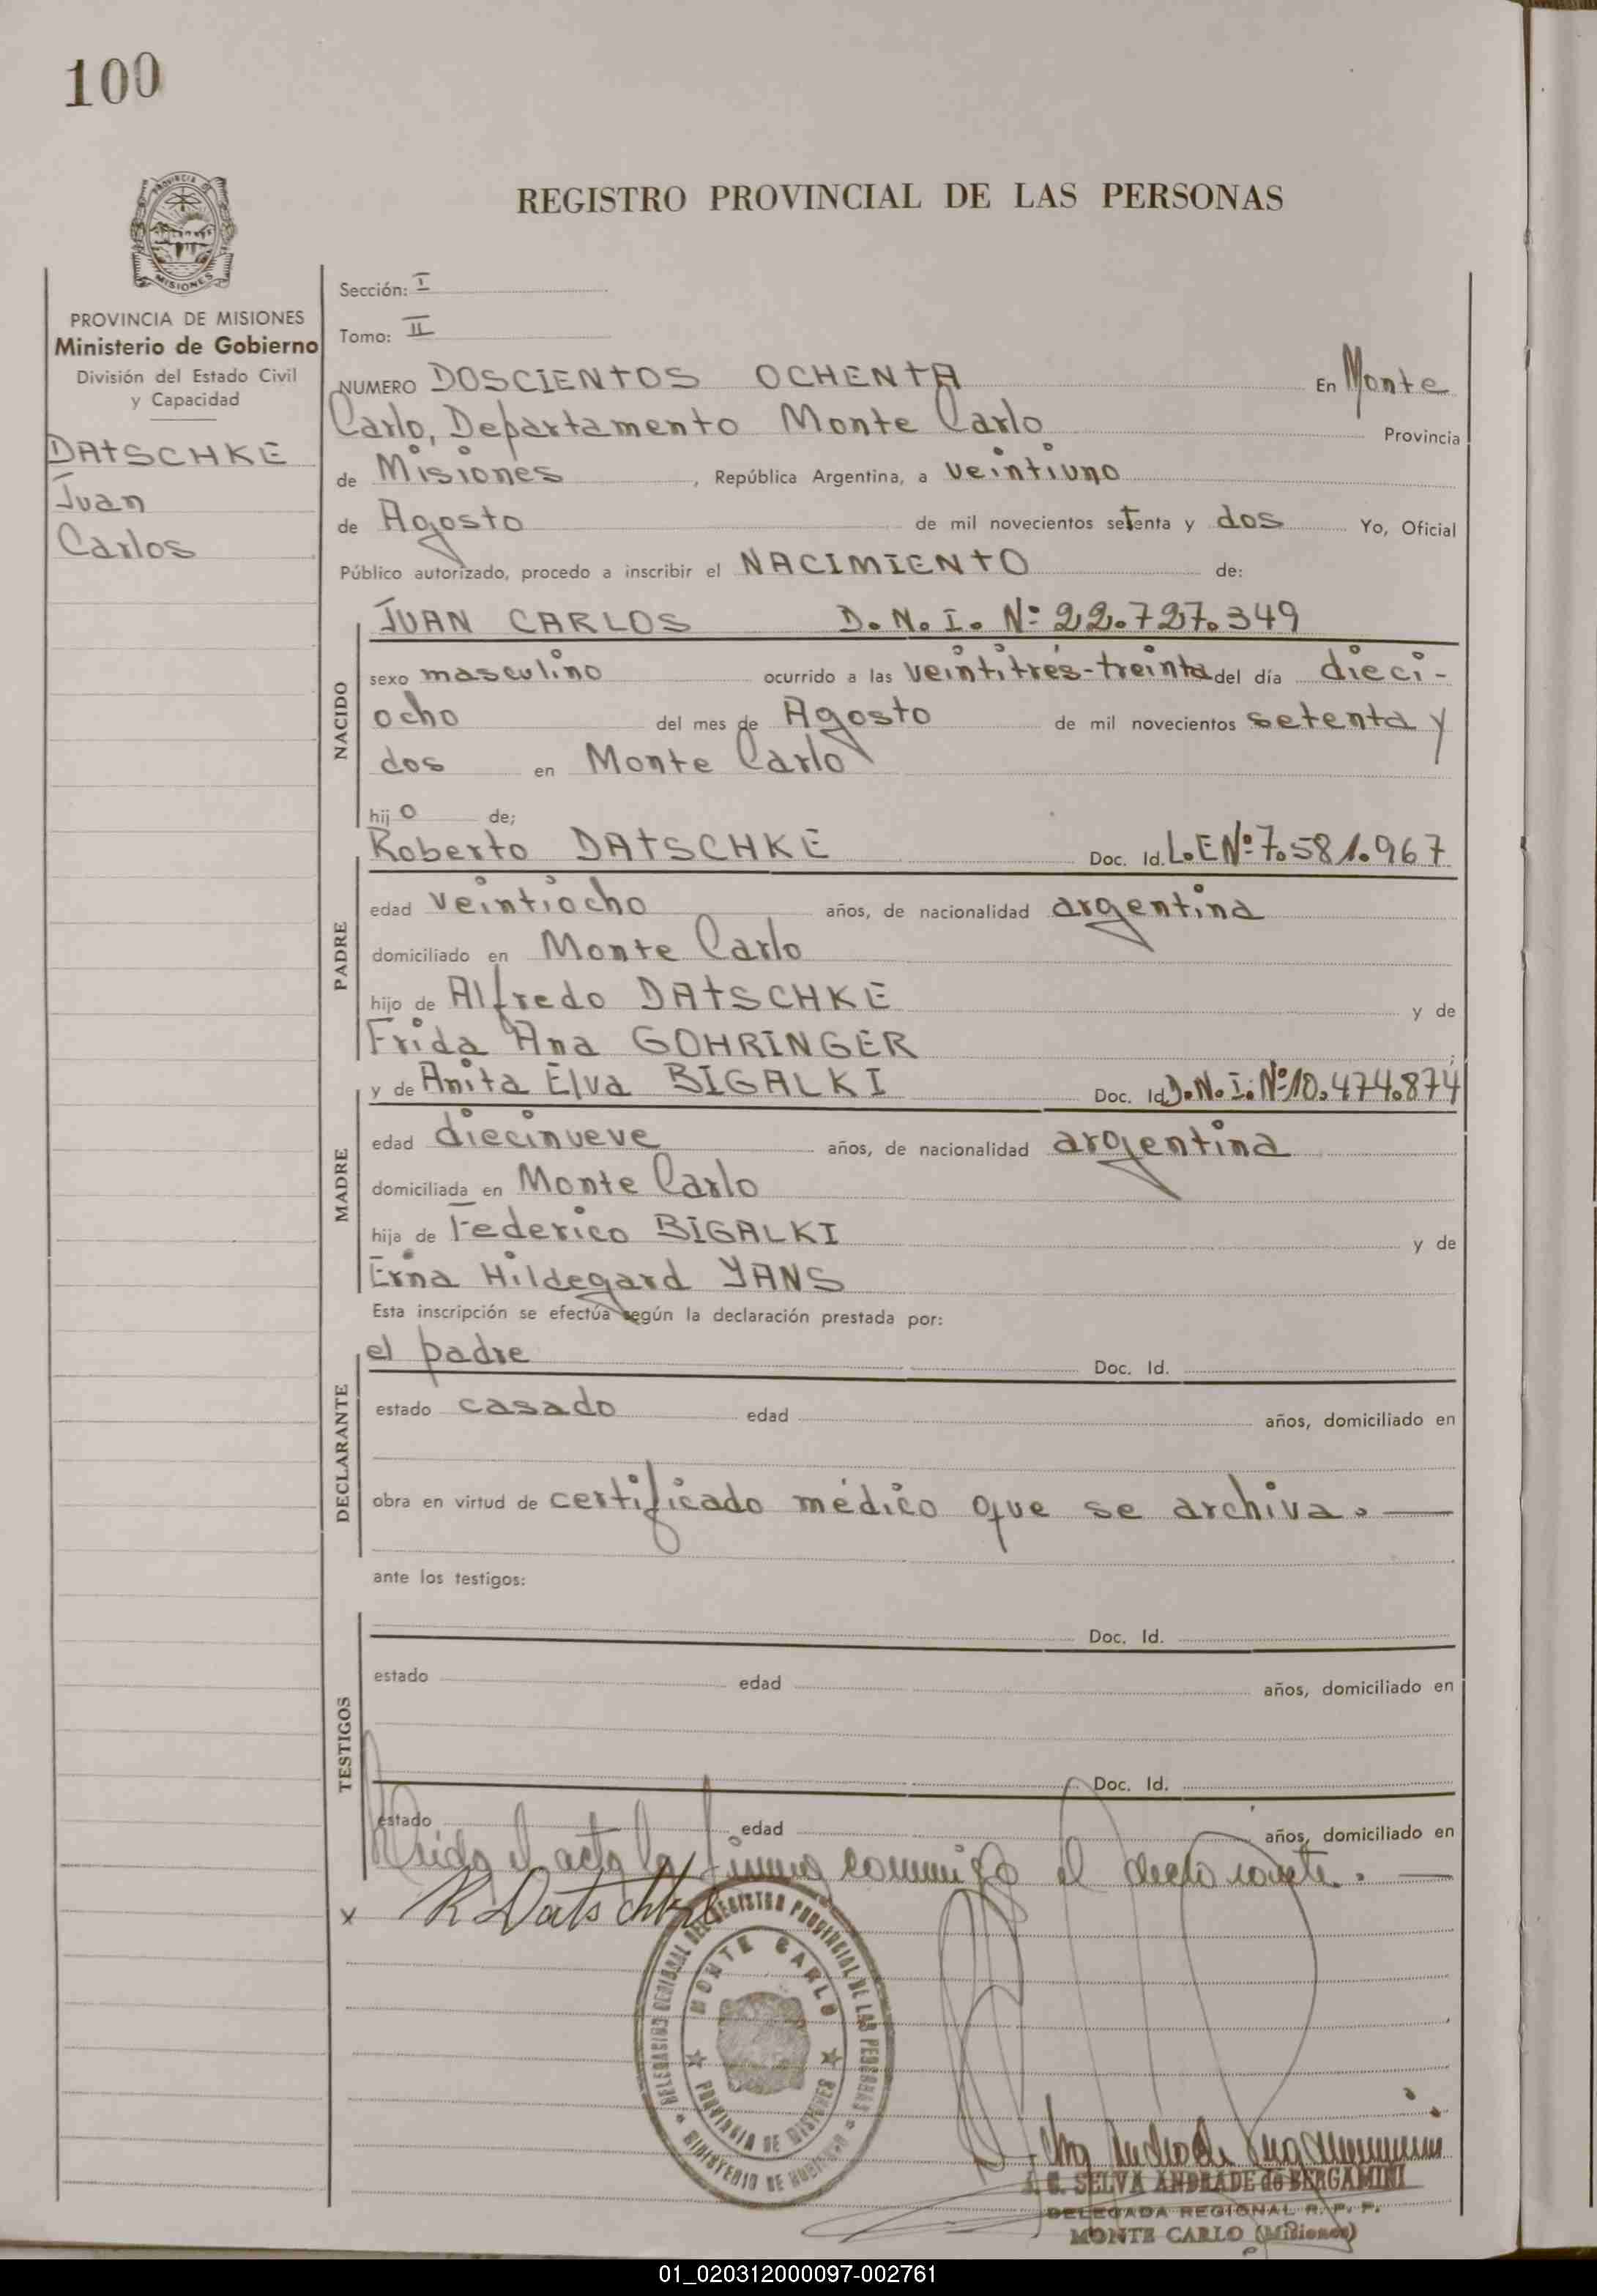 100
PROVINCIA DE
MISIONES
REGISTRO PROVINCIAL DE LAS PERSONAS
PROVINCIA DE MISIONES
Ministerio de Gobierno
División del Estado Civil
y Capacidad
DATSCHKE
Juan
Carlos
Sección: I
Tomo: II
NUMERO DOSCIENTOS OCHENTA En Monte
Carlo, Departamento Monte Carlo Provincia
de Misiones, República Argentina, a veintiuno
de Agosto de mil novecientos setenta y dos Yo, Oficial
Público autorizado, procedo a inscribir el NACIMIENTO de:
NACIDO
JUAN CARLOS D.N.I. Nº 22.727.349
sexo masculino ocurrido a las veintitrés-treinta del día dieci-
ocho del mes de Agosto de mil novecientos setenta y
dos en Monte Carlo
hijo de;
PADRE
Roberto DATSCHKE Doc. Id. L.E Nº 7.581.967
edad veintiocho años, de nacionalidad argentina
domiciliado en Monte Carlo
hijo de Alfredo DATSCHKE y de
Frida Ana GOHRINGER;
MADRE
y de Anita Elva BIGALKI Doc. Id. D.N.I. Nº 10.474.874
edad diecinueve años, de nacionalidad argentina
domiciliada en Monte Carlo
hija de Federico BIGALKI y de
Erna Hildegard YANS
Esta inscripción se efectúa según la declaración prestada por:
DECLARANTE
el padre Doc. Id.
estado casado edad años, domiciliado en
obra en virtud de certificado médico que se archiva.—
ante los testigos:
TESTIGOS
Doc. Id.
estado edad años, domiciliado en
Doc. Id.
estado edad años, domiciliado en
el acta la conmigo el declarante.—
x R Datschke
DELEGACION REGIONAL DEL REGISTRO PROVINCIAL DE LAS PERSONAS
MONTE CARLO
PROVINCIA DE MISIONES
MINISTERIO DE GOBIERNO
SELVA ANDRADE de BERGAMINI
DELEGADA REGIONAL R. P. P.
MONTE CARLO (Misiones)
01_020312000097-002761